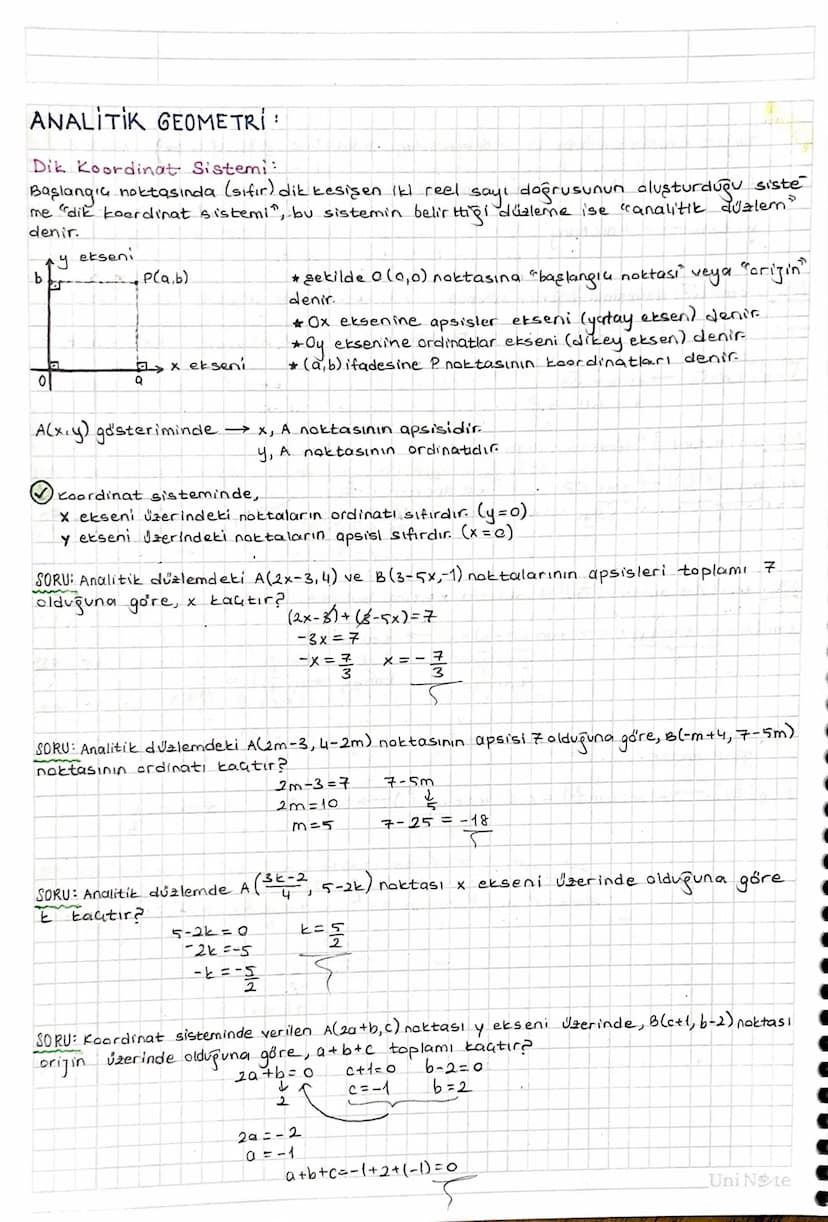 ANALİTİK GEOMETRİ:
Dik Koordinat Sistemi:
Başlangıç noktasında (sıfır) dik kesişen iki reel sayı doğrusunun oluşturduğu siste-
me "dik koordinat sistemi", bu sistemin belirttiği düzleme ise "analitik düzlem"
denir.
y ekseni
b
P(a,b)
x ekseni
0
a
* şekilde O(0,0) noktasına "başlangıç noktası" veya "orijin"
denir.
* Ox eksenine apsisler ekseni (yatay eksen) denir.
* Oy eksenine ordinatlar ekseni (dikey eksen) denir.
* (a,b) ifadesine P noktasının koordinatları denir.
A(x,y) gösteriminde → x, A noktasının apsisidir.
y, A noktasının ordinatıdır.
✓ Koordinat sisteminde,
x ekseni üzerindeki noktaların ordinatı sıfırdır. (y=0)
y ekseni üzerindeki noktaların apsisi sıfırdır. (x=0)
SORU: Analitik düzlemdeki A(2x-3,4) ve B(3-5x,-1) noktalarının apsisleri toplamı 7
olduğuna göre, x kaçtır?
(2x-3)+(3-5x)=7
-3x=7
-x=7/3 x=-7/3
SORU: Analitik düzlemdeki A(2m-3, 4-2m) noktasının apsisi 7 olduğuna göre, B(-m+4, 7-5m)
noktasının ordinatı kaçtır?
2m-3=7 7-5m
2m=10 ↓ 5
m=5 7-25=-18
SORU: Analitik düzlemde A((3k-2)/4, 5-2k) noktası x ekseni üzerinde olduğuna göre
k kaçtır?
5-2k=0 k=5/2
-2k=-5
-k=-5/2
SORU: Koordinat sisteminde verilen A(2a+b,c) noktası y ekseni üzerinde, B(c+1, b-2) noktası
orijin üzerinde olduğuna göre, a+b+c toplamı kaçtır?
2a+b=0 c+1=0 b-2=0
↓ 2 c=-1 b=2
2a=-2
a=-1
a+b+c=-1+2+(-1)=0
UniNote